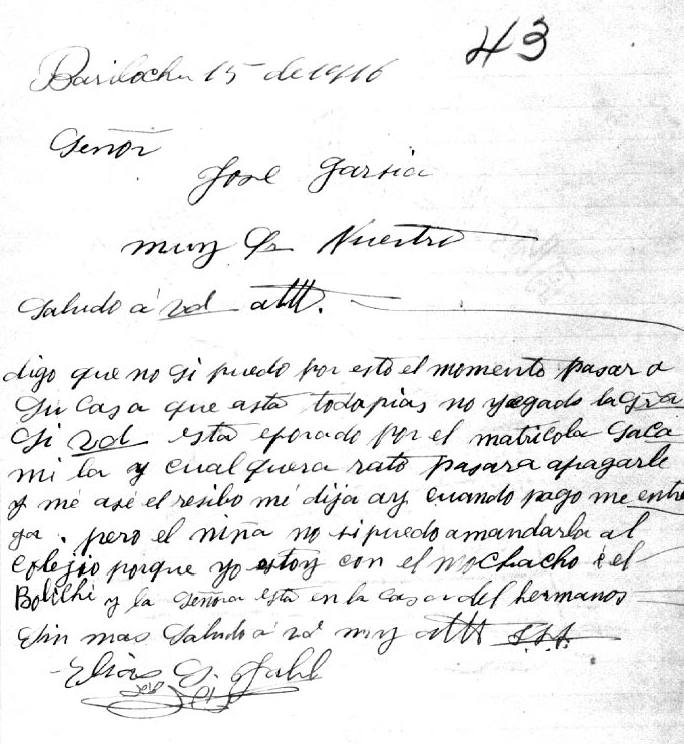 43
Bariloche 15 de 1916
Señor
José Garsia
muy Sr Nuestro
Saludo á vd attt.
digo que no si puedo por esto el momento pasar a
su casa que asta todapias no yegado la Sra
Si vd esta eporado por el matricola Saca
mi la y cual quera rato pasara apagarle
y me asé el resibo mi dija ay cuando pago me entre
ga . pero el niña no si puedo amandarla al
colejio porque yo estoy con el mochacho é el
Bolichi y la Señora esta en la casa del hermanos
Sin mas Saludo á vd muy attt S.S.S.
Elias